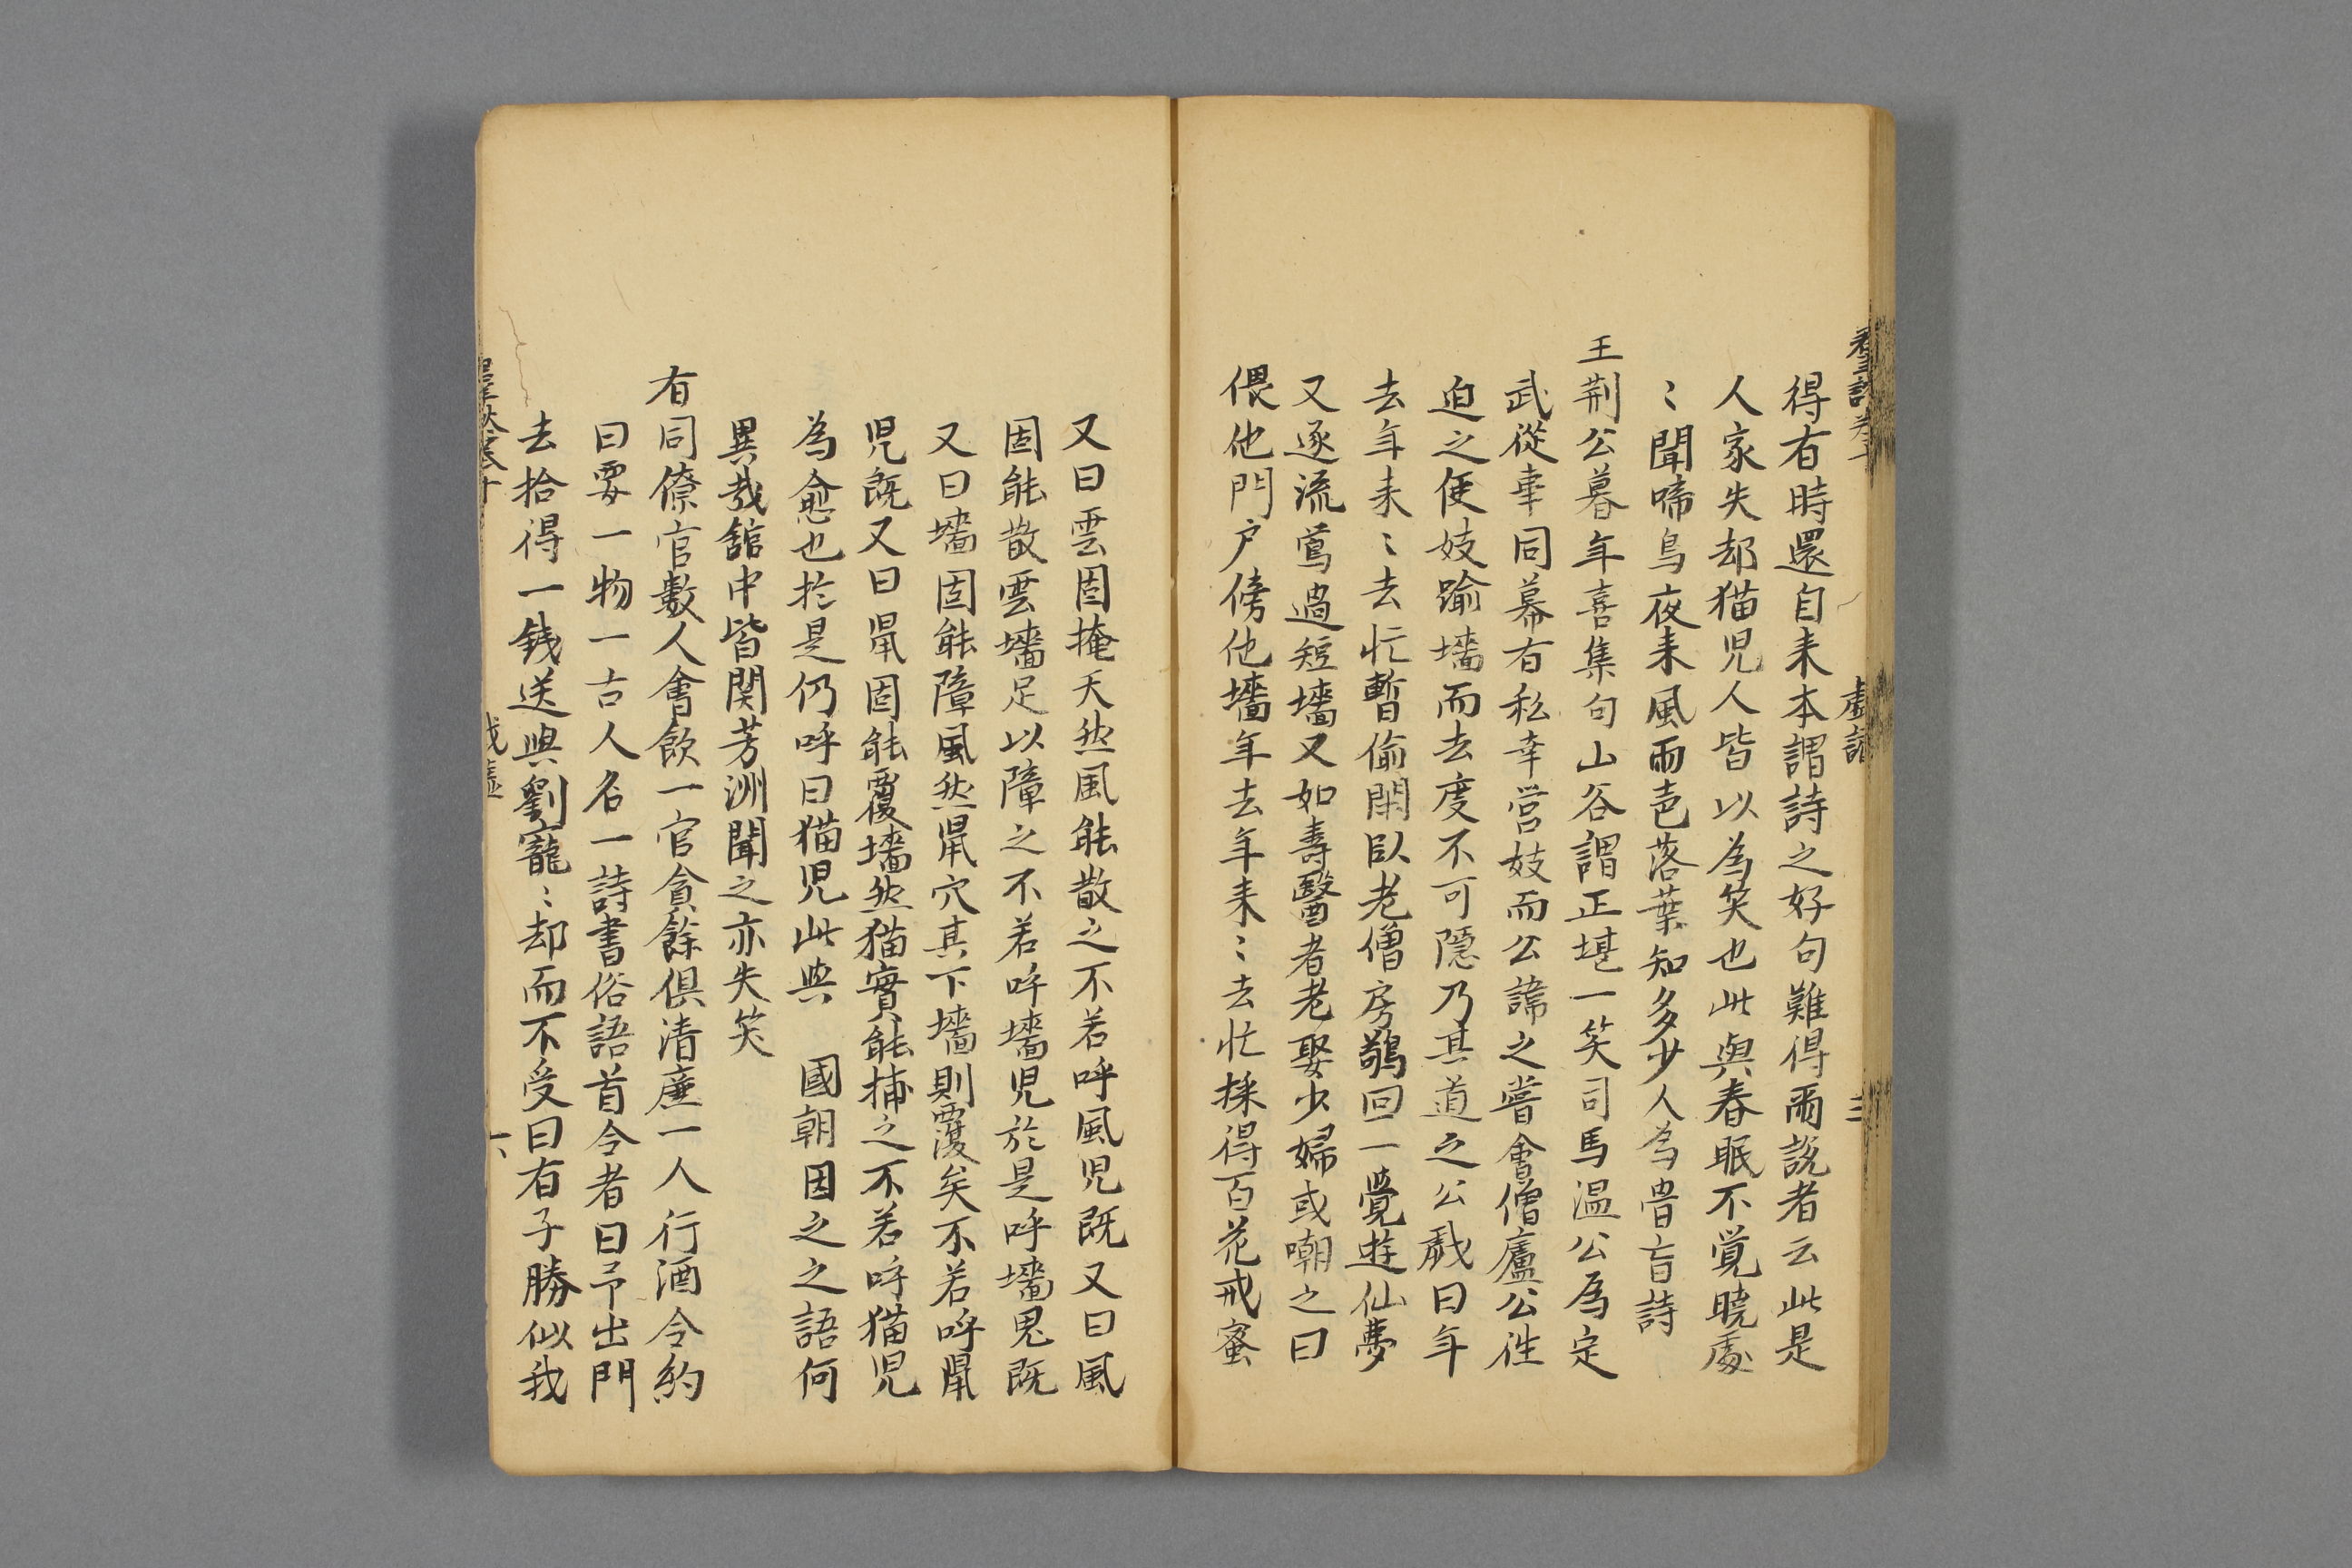 戱謔
三
得有時還自来本謂詩之好句難得爾說者云此是
人家失却猫児人皆以為笑也此與春眠不覚曉處
〻聞啼鳥夜来風雨声落葉知多少人為嘗盲詩
王荆公暮年喜集句山谷謂正堪一笑司馬温公為定
武從事同幕有私幸営妓而公諱之嘗會僧廬公往
迫之便妓踰墻而去度不可隱乃其道之公戱曰年
去年来〻去忙暫偷閑臥老僧房鷩回一覺遊仙夢
又逐流鶯過短墻又如壽醫者老娶少婦或嘲之曰
偎他門户傍他墻年去年来〻去忙採得百花戒蜜
又曰雲固掩天然風能散之不若呼風児既又曰風
固能散雲墻足以障之不若呼墻児於是呼墻児既
又曰墻固能障風然鼠穴其下墻則覆矣不若呼鼠
児既又曰鼠固能覆墻然猫實能捕之不若呼猫児
為愈也扵是仍呼曰猫児此與 國朝因之之語何
異㢤舘中皆関芳洲聞之亦失笑
有同僚官數人會飲一官貪餘俱清㢘一人行酒令約
曰要一物一古人名一詩書俗語首令者曰予出門
去拾得一銭送與劉寵〻却而不受曰有子勝似我
六